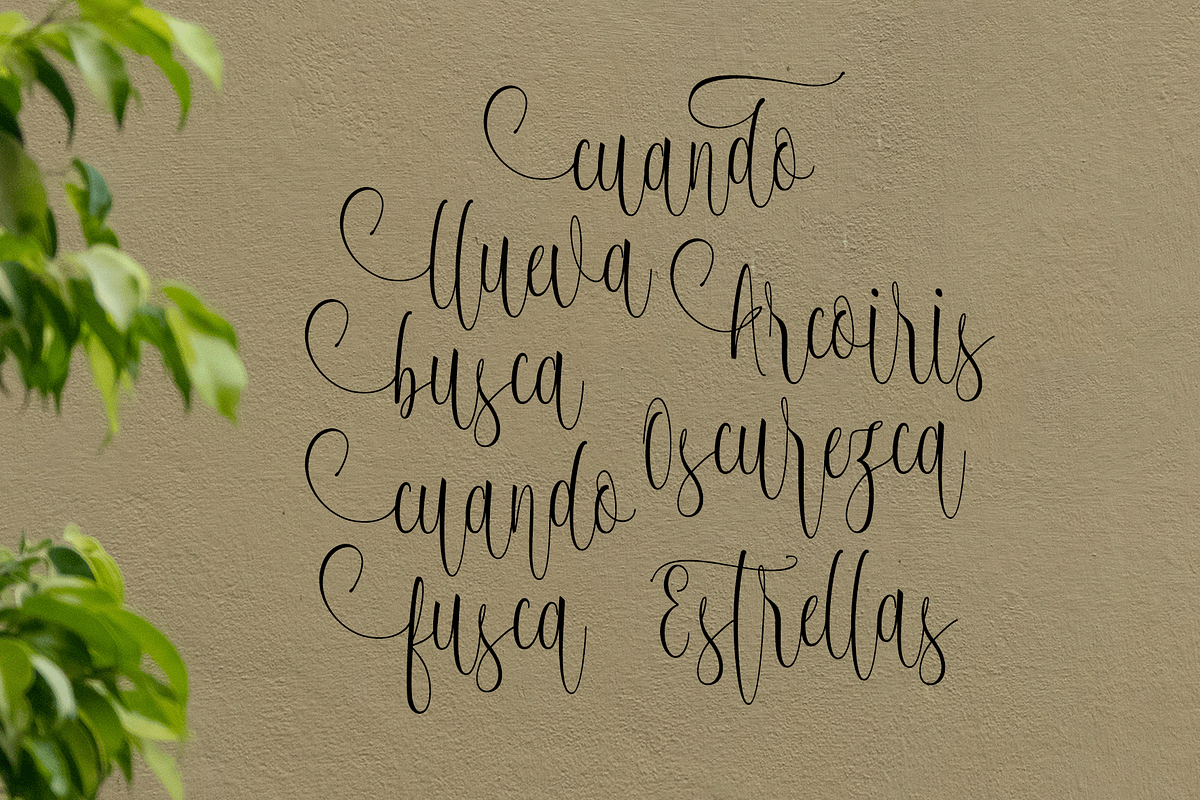 cuando
llueva Arcoiris
busca
cuando Oscurezca
fusca Estrellas